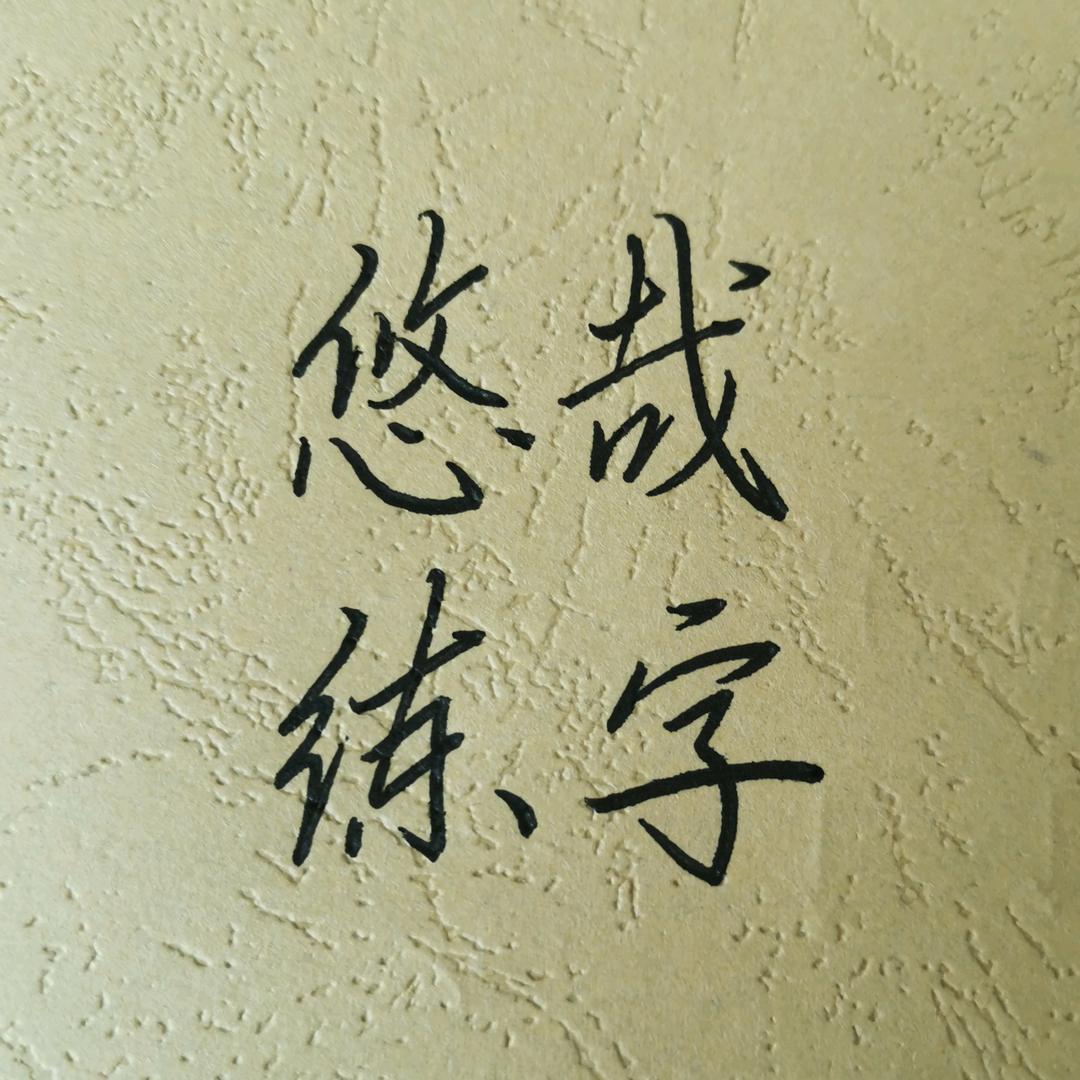 悠哉
练字